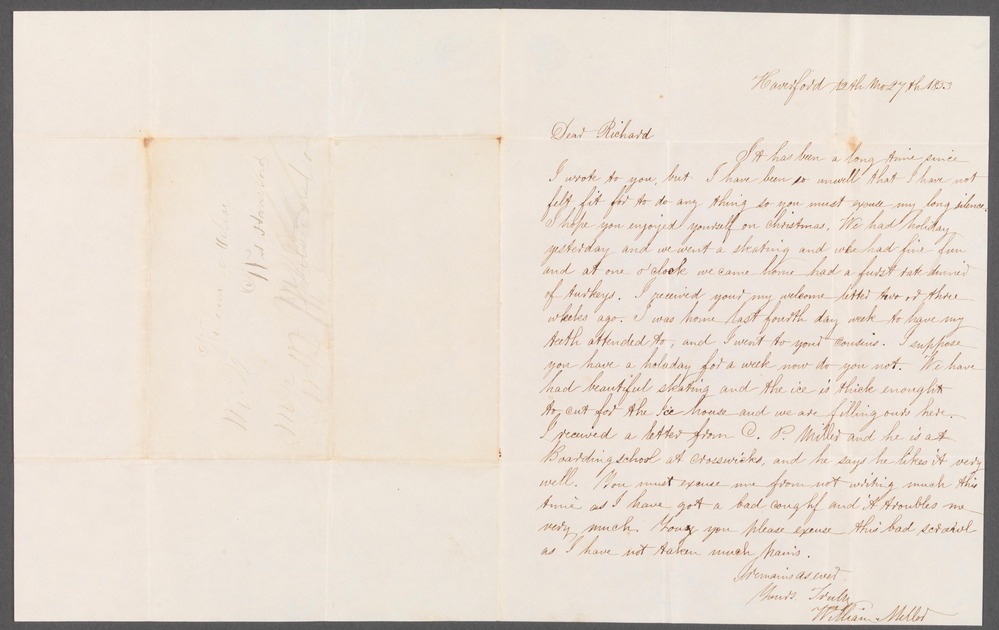 Haverford 12th Mo 27th 1853
Dear Richard
It has been a long time since
I wrote to you, but I have been so unwell that I have not
felt fit for to do any thing so you must excuse my long silence.
I hope you enjoyed yourself on Christmas. We had holiday
yesterday and we went a skating and we had fine fun
and at one o'clock we came home had a furst rate dinner
of turkeys. I received your my welcome letter two or three
wheeks ago. I was home last fourth day week to have my
teeth attended to, and I went to your cousins. I suppose
you have a holaday for a week now do you not. We have
had beautiful skating and the ice is thick enought
to cut for the Ice house and we are filling ours here.
I received a letter from C. P. Miller and he is at
Boarding school at Crosswicks, and he says he likes it very
well. You must excuse me from not writing much this
time as I have got a bad coughf and it troubles me
very much. you please excuse this bad scrawl
as I have not taken much pains.
I remains as ever
Yours Truly
William Miller